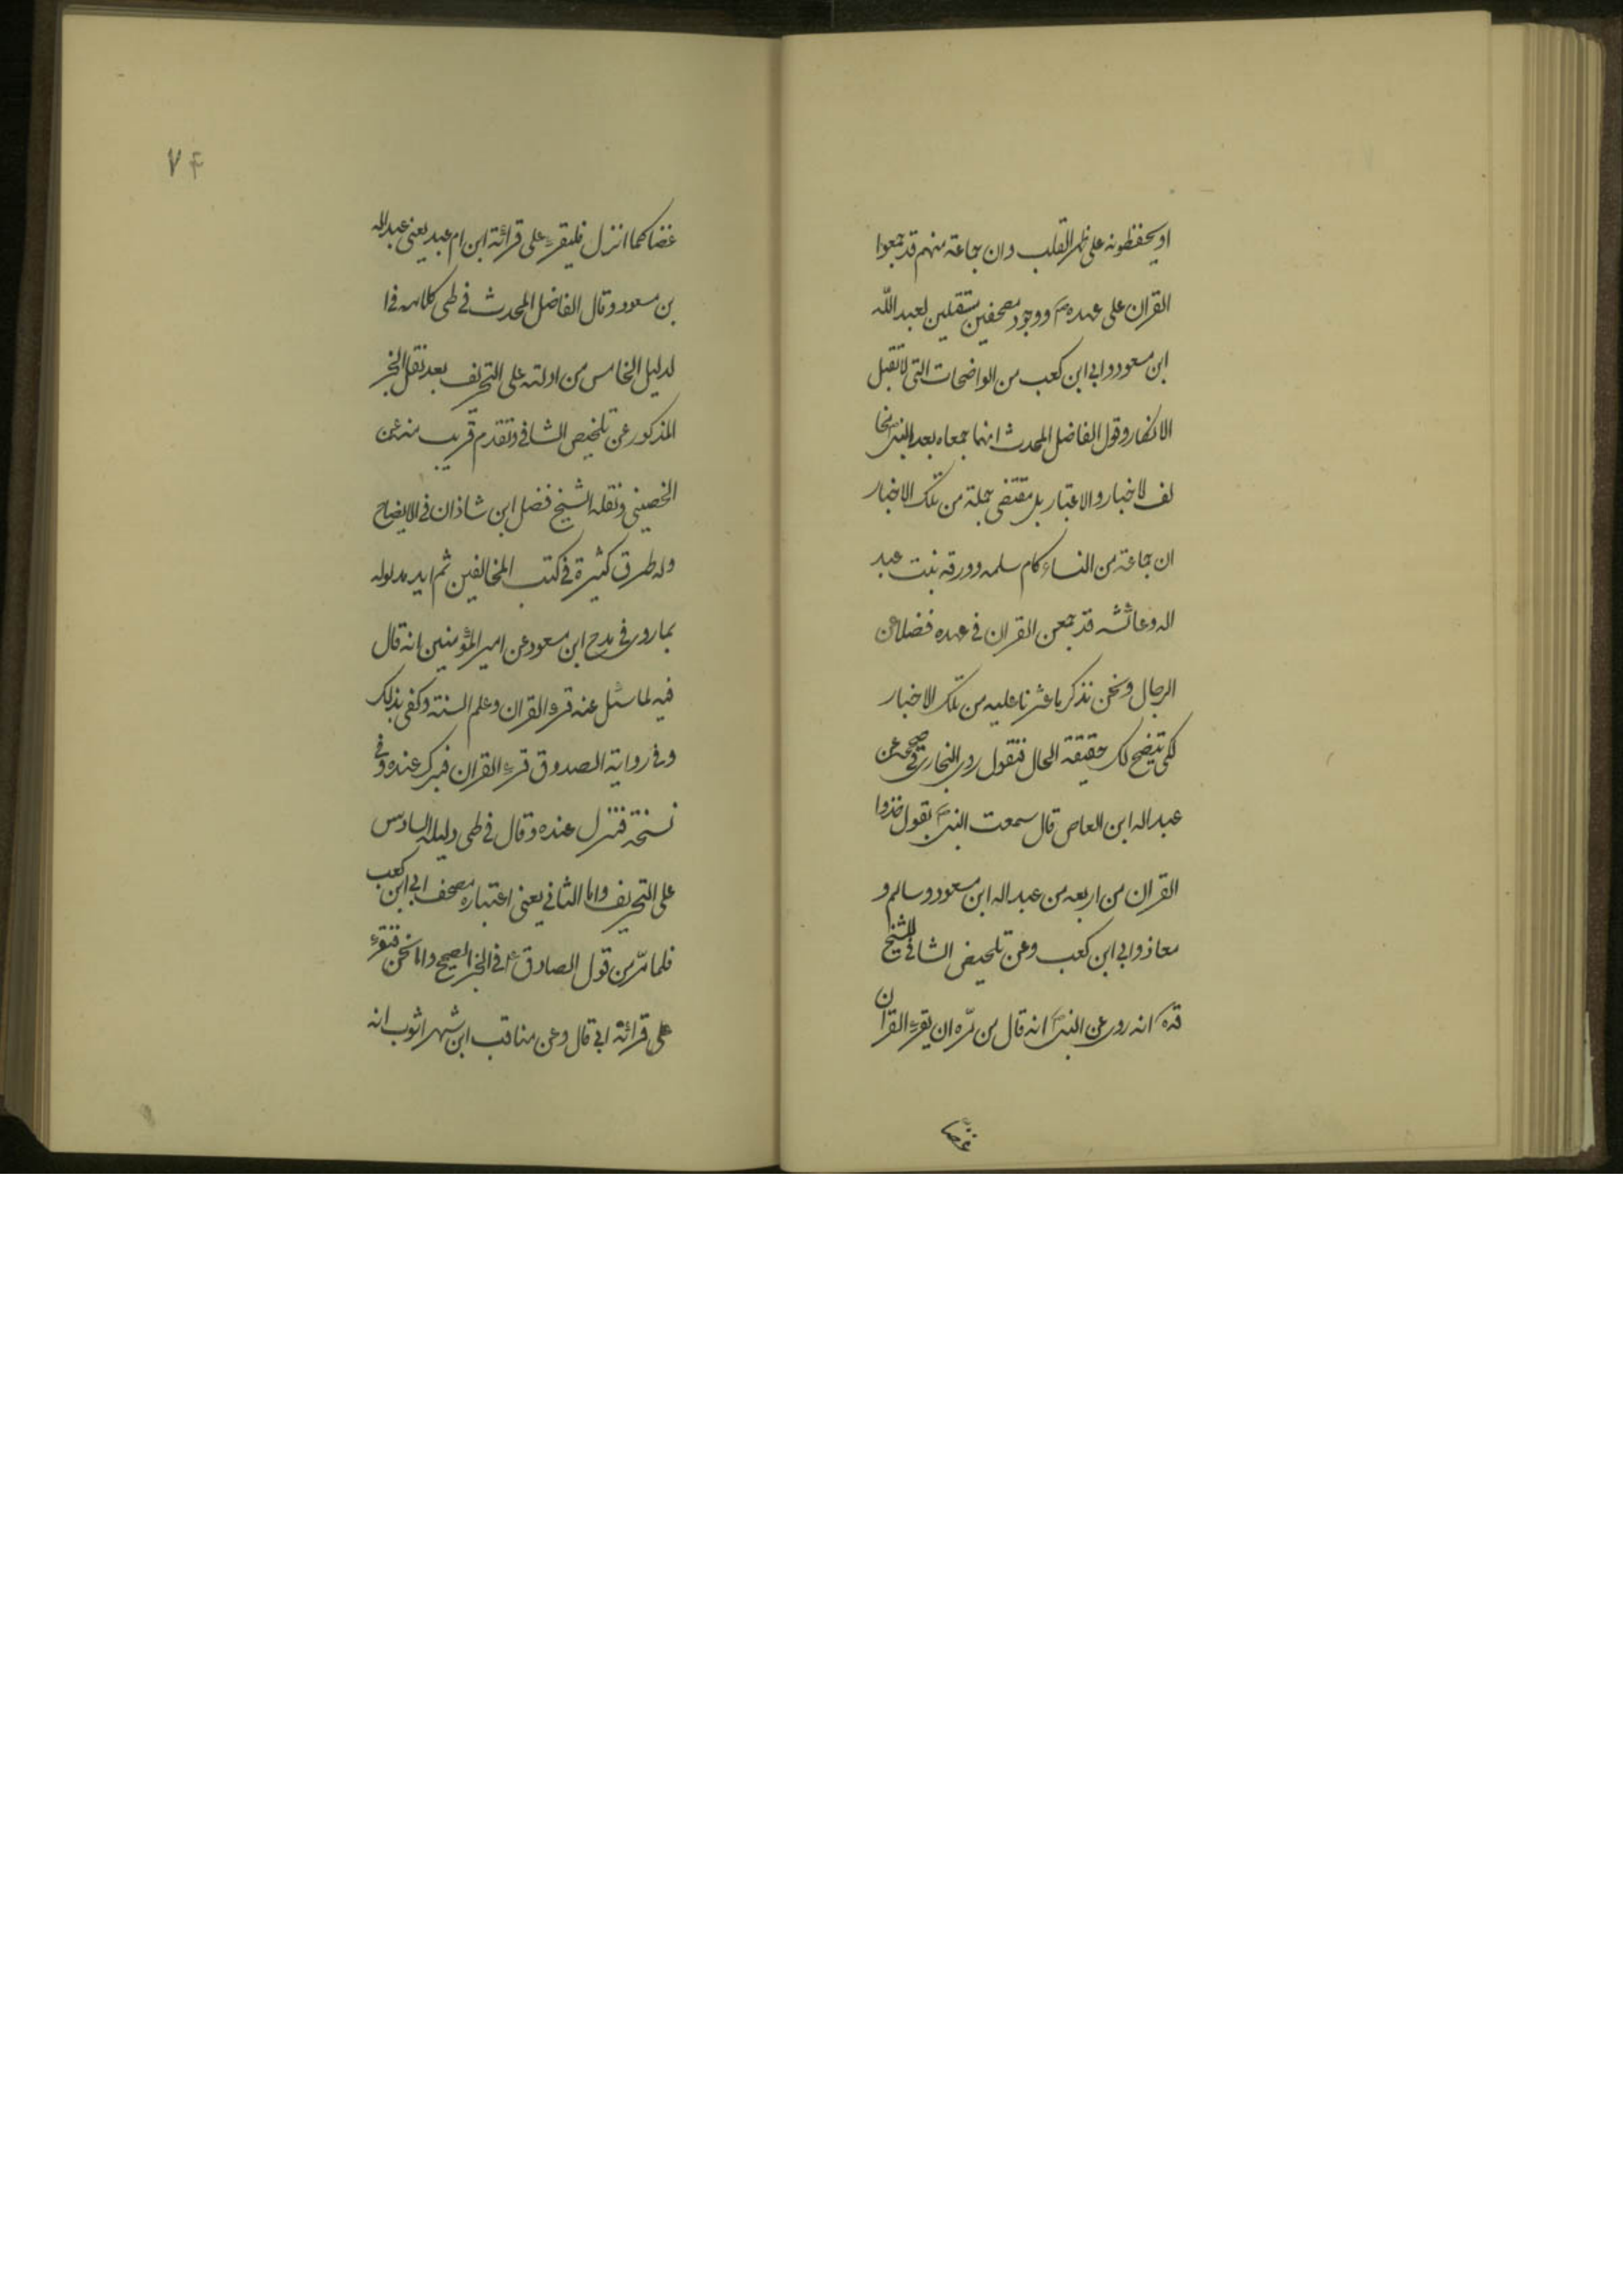 او يحفظونه على ظهر القلب وان جماعة منهم قد جمعوا
القران على عهده ص ووجود مصحفين مستقلين لعبد الله
ابن مسعود وابي ابن كعب من الواضحات التي لا تقبل
الانكار وقول الفاضل المحدث انهما جمعاه بعد النبي ص مخا
لف لاخبار والاعتبار بل مقتضى جملة من تلك الاخبار
ان جماعة من النساء كام سلمه وورقه بنت عبد
اله وعائشه قد جمعن القران في عهده فضلا عن
الرجال ونحن نذكر ما عثرنا عليه من تلك الاخبار
لكى تيضح لك حقيقة الحال فنقول روى البخارى في صحيحه عن
عبد اله ابن العاص قال سمعت النبي ص يقول خذوا
القران من اربعه من عبد اله ابن مسعود وسالم و
معاذ وابي ابن كعب وعن تلخيص الشافي للشيخ
قده انه روى عن النبي ص انه قال من سره ان يقرء القران
غضا
٧۴
غضا كما انزل فليقرء على قرائة ابن ام عبد يعني عبد الله
بن مسعود وقال الفاضل المحدث في طى كلامه في ا
لدليل الخامس من ادلته على التحريف بعد نقل الخبر
المذكور عن تلخيص الشافي وتقدم قريب منه عن
الخصيني ونقله الشيخ فضل ابن شاذان في الايضاح
وله طرق كثيرة في كتب المخالفين ثم ايد مدلوله
بما روى في مدح ابن مسعود عن امير المؤمنين انه قال
فيه لما سئل عنه قرء القران وعلم السنة وكفى بذلك
وفي رواية الصدوق قرء القران فبرك عنده وفي
نسخة فنزل عنده وقال في طى دليله السادس
على التحريف واما الثاني يعني اعتباره مصحف ابي ابن كعب
فلما مرّ من قول الصادق ع في الخبر الصحيح واما نحن فنقرء
على قرائة ابي قال وعن مناقب ابن شهر اثوب انه